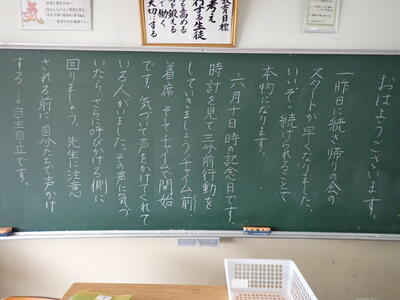 育目標
考え
行する生徒
を高める
を鍛える
て働く
大切にする
おはようございます。
一昨日に続き帰りの会の
スタートが早くなりました。
いいぞ。続けられることで
本物になります。
六月十日時の記念日です。
時計を見て三分前行動を
していきましょう(チャイム前
着席そしてチャイムで開始
です。気づいて声をかけてくれて
いる人がいました。その声に気づ
いたら、さらに呼びかける側に
回りましょう。先生に注意
される前に自分たちで声かけ
する→自主自立です。